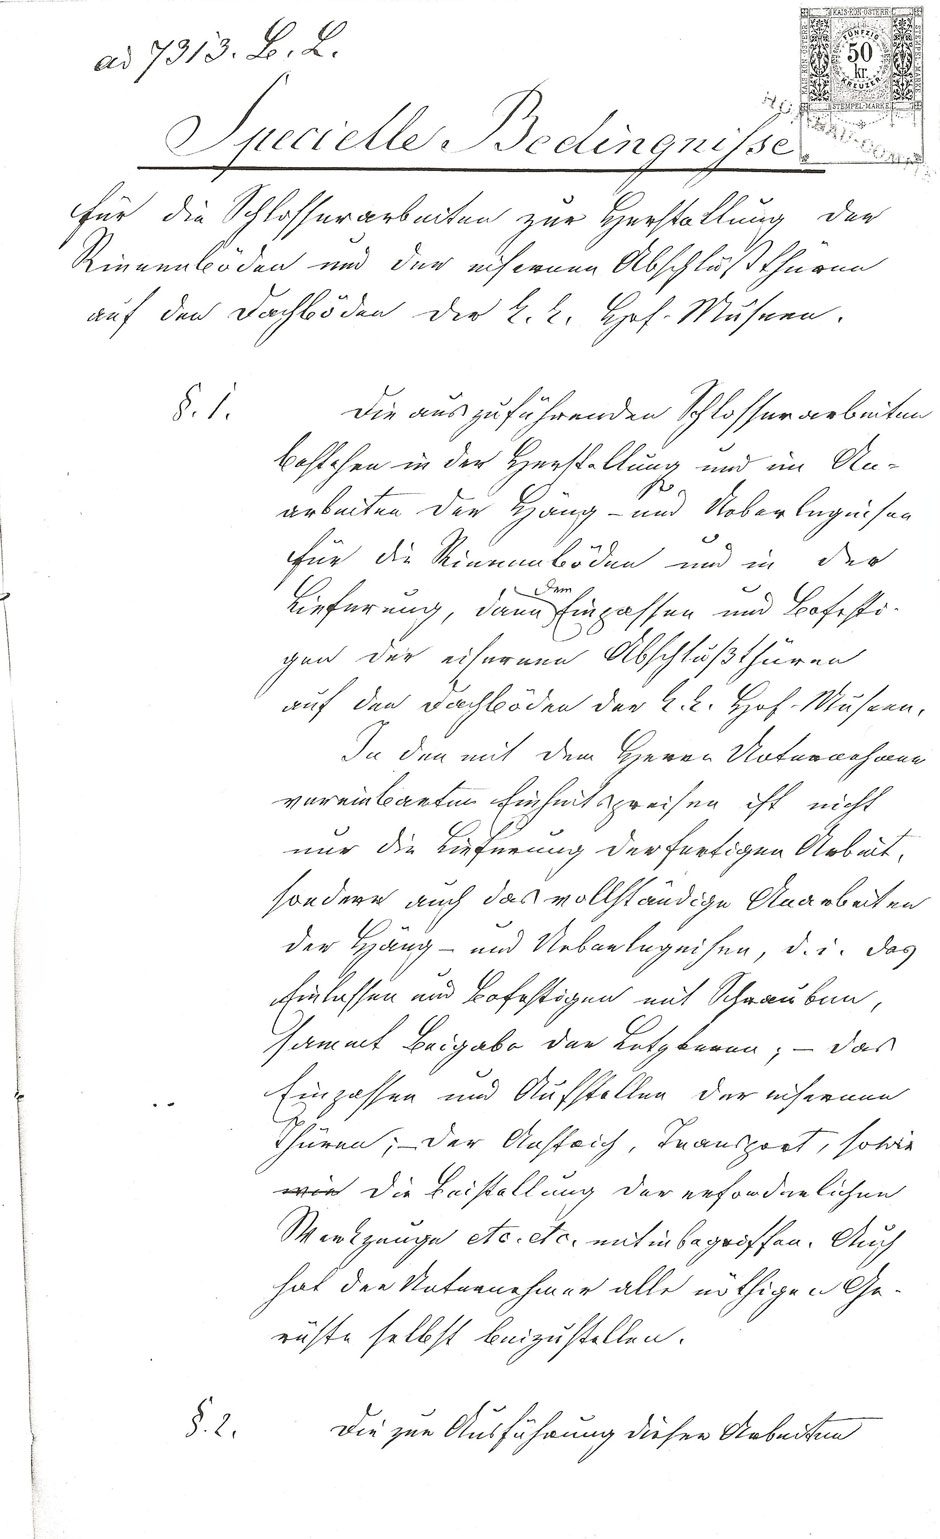 ad 7313. B. L.
KAIS. KÖN. ÖSTERR.
STEMPEL-MARKE
FÜNFZIG
50
kr.
KREUZER
STEMPEL-MARKE
HOFBAU-COMITÉ
Specielle Bedingnisse
für die Schlosserarbeiten zur Herstellung der
Rinnenböden und der eisernen Abschlußthüren
auf den Dachböden der k. k. Hof-Museen.
§. 1. Die auszuführenden Schlosserarbeiten
bestehen in der Herstellung und im An-
arbeiten der Häng- und Ueberlegeisen
für die Rinnenböden und in der
Lieferung, dann dem Einpassen und Befesti-
gen der eisernen Abschlußthüren
auf den Dachböden der k. k. Hof-Museen.
In den mit dem Herrn Unternehmer
vereinbarten Einheitspreisen ist nicht
nur die Lieferung der fertigen Arbeit,
sondern auch das vollständige Anarbeiten
der Häng- und Ueberlegeisen, d. i. das
Einlassen und Befestigen mit Schrauben,
sammt Beigabe der Letzteren; – das
Einpassen und Aufstellen der eisernen
Thüren; – der Anstrich, Transport, sowie
wie die Beistellung der erforderlichen
Werkzeuge etc. etc. mitinbegriffen. Auch
hat der Unternehmer alle nöthigen Ge-
rüste selbst beizustellen.
§. 2. Die zur Ausführung dieser Arbeiten